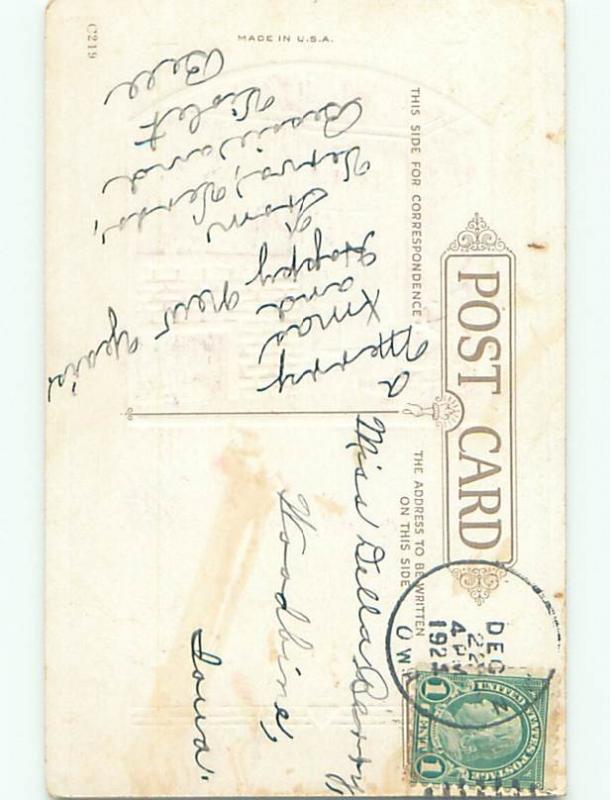 POST CARD
THIS SIDE FOR CORRESPONDENCE
THE ADDRESS TO BE WRITTEN
ON THIS SIDE
MADE IN U.S.A.
C219
a Merry
Xmas
and
Happy New
From
Verna, Verda,
Bessie and
Violet
Bell
Miss Della Berry
Woodbine,
Iowa.
DEC
22
4 PM
192
OWA
UNITED STATES POSTAGE
1 CENT 1